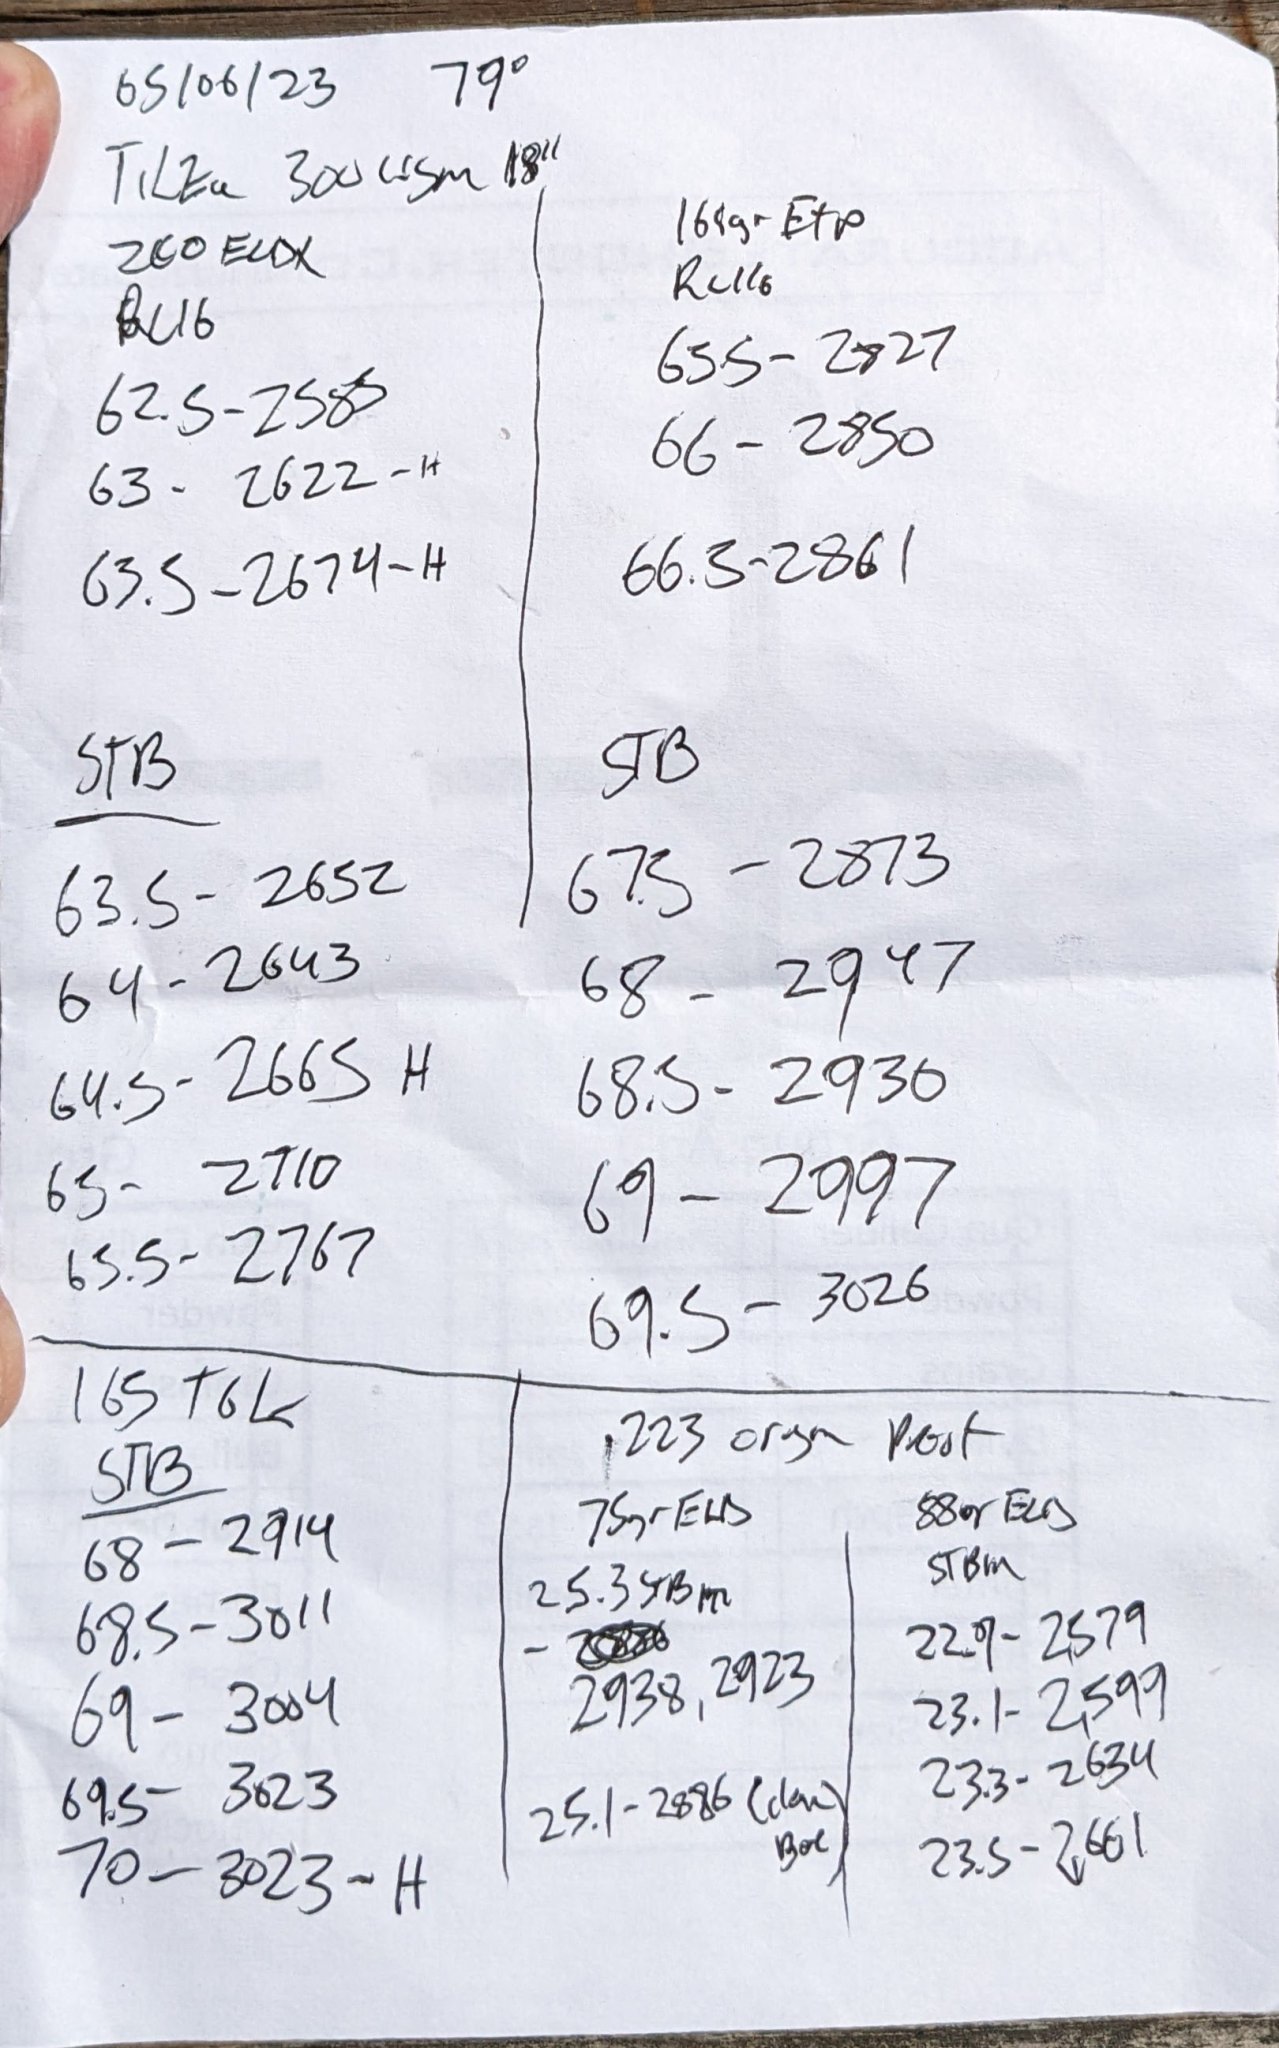 65/06/23 79°
Tikka 300 wsm 18"
200 ELDX
RL16
62.5-2585
63 - 2622 - H
63.5 - 2674 - H
STB
63.5 - 2652
64 - 2643
64.5 - 2665 H
65 - 2710
65.5 - 2767
168gr Etip
RL16
65.5 - 2827
66 - 2850
66.5 - 2861
STB
67.5 - 2873
68 - 2947
68.5 - 2930
69 - 2997
69.5 - 3026
165 TGK
STB
68 - 2914
68.5 - 3011
69 - 3004
69.5 - 3023
70 - 3023 - H
.223 origin
75gr ELD
25.3 STBm
-
2938, 2923
25.1 - 2886 (clean
Bore)
88gr ELD
STBm
22.9 - 2,579
23.1 - 2,599
23.3 - 2634
23.5 - 2,661